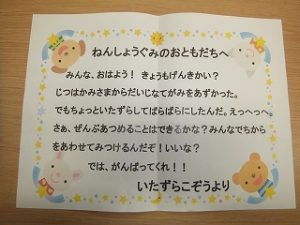 ねんしょうぐみのおともだちへ
みんな、おはよう！ きょうもげんきかい？
じつはかみさまからだいじなてがみをあずかった。
でもちょっといたずらしてばらばらにしたんだ。えっへっへ。
さぁ、ぜんぶあつめることはできるかな？みんなでちから
をあわせてみつけるんだぞ！いいな？
では、がんばってくれ！！
いたずらこぞうより